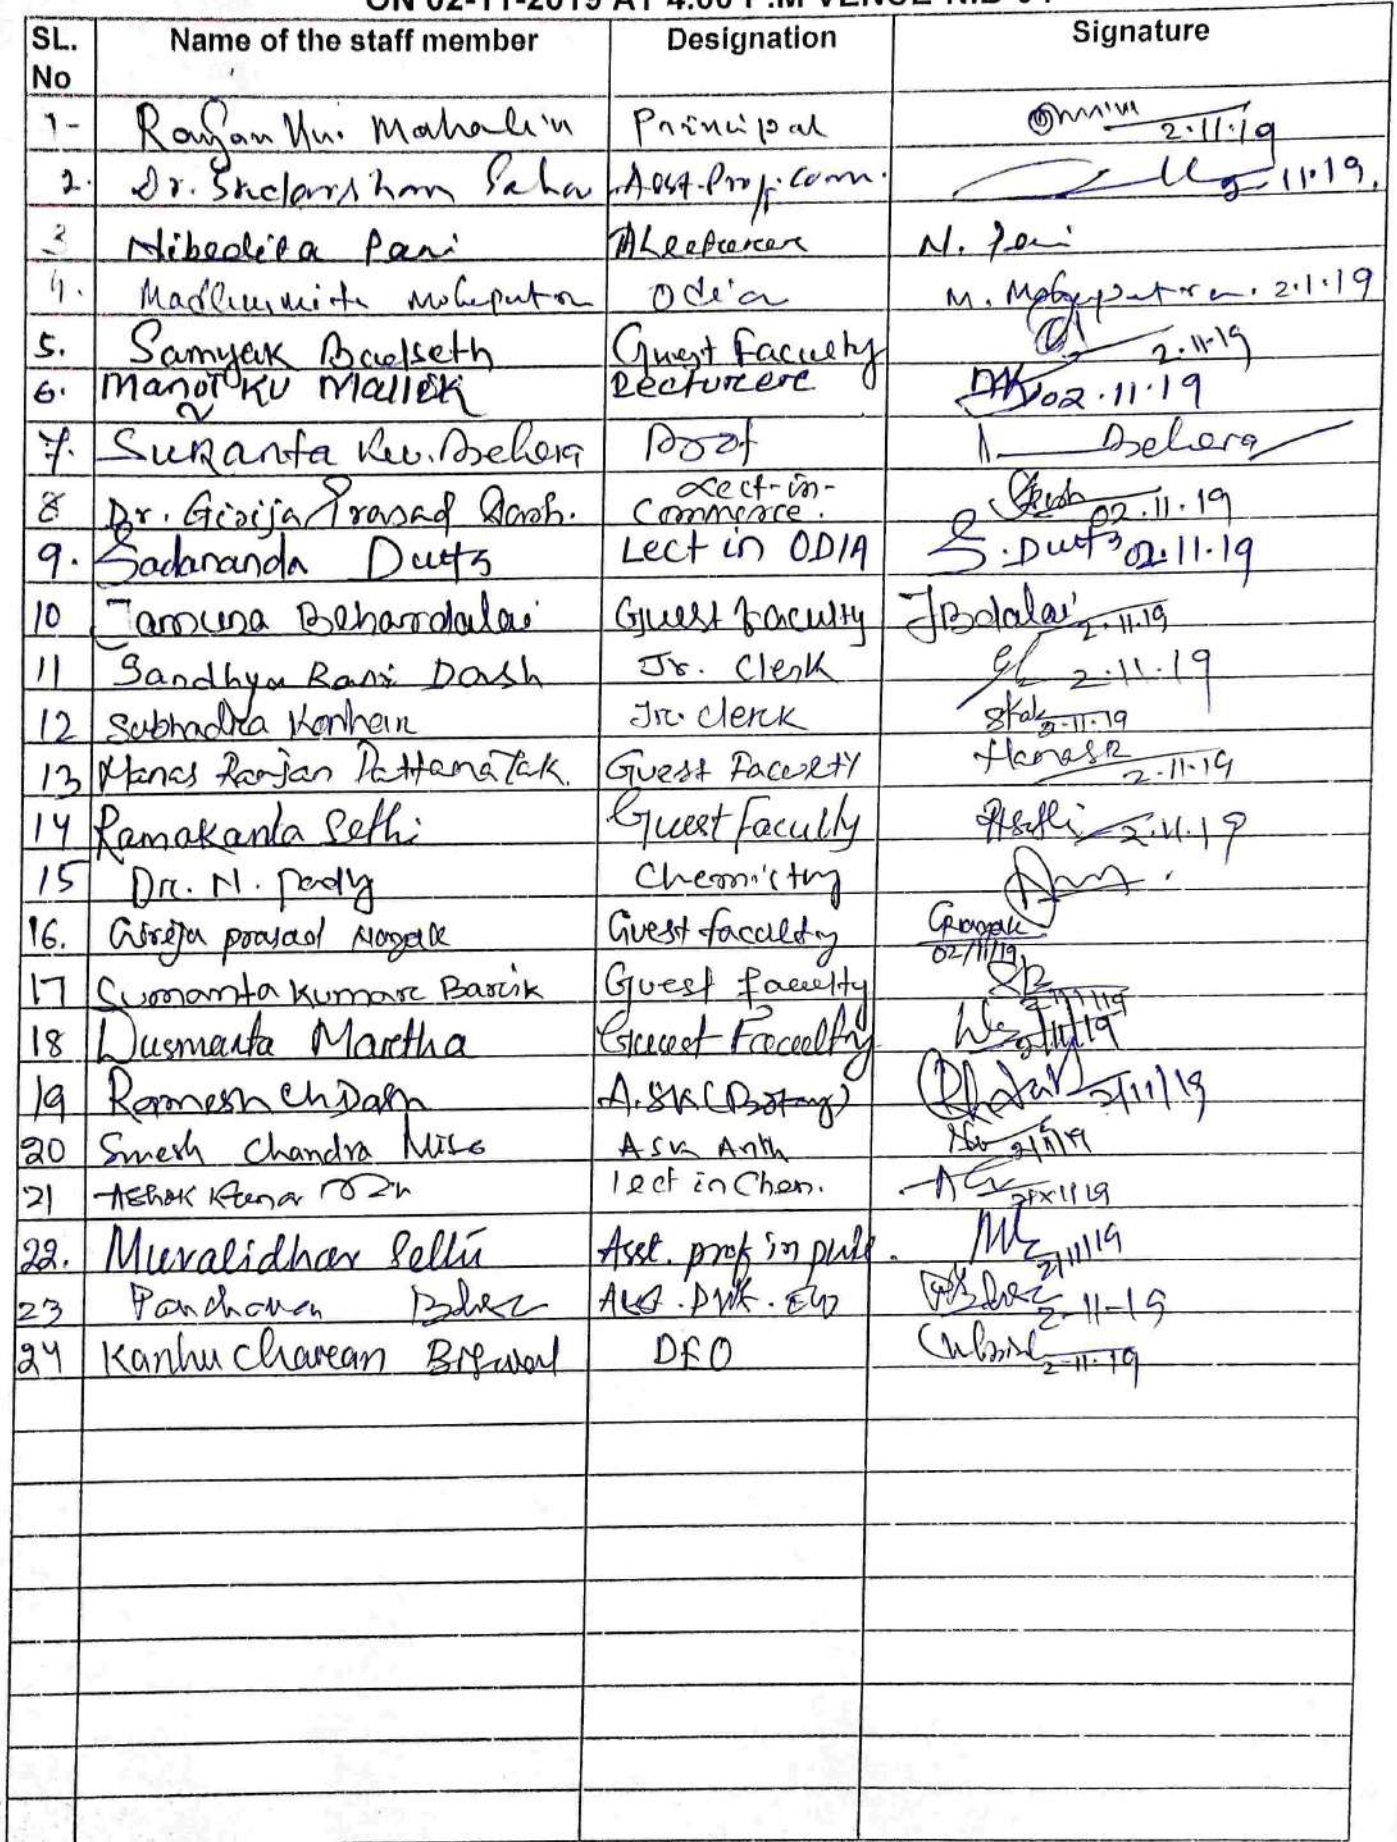 ON 02-11-2019 AT 4.00 P.M VENUE-NIB-04
SL. No Name of the staff member Designation Signature
1- Ranjan Ku. Principal 2.11.19
2. Dr. Sudarshan Saha Asst. Prof. Com. 2-11.19.
3 Nibedita Pani N. Pani
4. Madhumita Mohapatra Odia M. Mohapatra. 2.1.19
5. Samyak Badseth Guest Faculty 2.11.19
6. Manoj Ku Mallik Lecturere 02.11.19
7. Sukanta Ku. Behera Prof Behera
Lect-in-
8 Dr. Girija Prasad Dash. Commerce. 02.11.19
9. Sadananda Dutta Lect in ODIA S. Dutta 02.11.19
10 Jamuna Behardalai Guest faculty JBdalai 2.11.19
11 Sandhya Rani Dash Jr. Clerk 2.11.19
12 Subhadra Konhar Jr. Clerk 2-11-19
13 Manas Ranjan Pattanaik. Guest Faculty ManasR 2-11-19
14 Ramakanta Sethi Guest Faculty RSethi 2.11.19
15 Dr. N. Pady Chemistry
16. Girija prasad Nayak Guest faculty GPNayak
02/11/19
17 Sumanta Kumar Barik Guest faculty 2/11/19
18 Dusmanta Martha Guest Faculty 2/11/19
19 Ramesh Ch Dash A.SK (Botany) 2/11/19
20 Suresh Chandra Misra ASK Anth 2/11/19
21 Ashok Kumar lect in Chem.
22. Muralidhar Sethi Asst. prof in 2/11/19
23 Panchanan 2-11-19
24 Kanhu Charan Biswal DEO 2-11-19